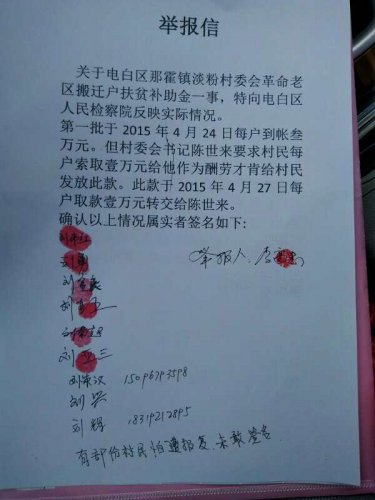 举报信
关于电白区那霍镇淡粉村委会革命老
区搬迁户扶贫补助金一事，特向电白区
人民检察院反映实际情况。
第一批于 2015 年 4 月 24 日每户到帐叁
万元。但村委会书记陈世来要求村民每
户索取壹万元给他作为酬劳才肯给村民
发放此款。此款于 2015 年 4 月 27 日每
户取款壹万元转交给陈世来。
确认以上情况属实者签名如下：
举报人：李
刘
刘
刘
刘 三
刘 汉 15096793598
刘 兴
刘 辉 18319212895
有部份村民怕遭报复 未敢签名